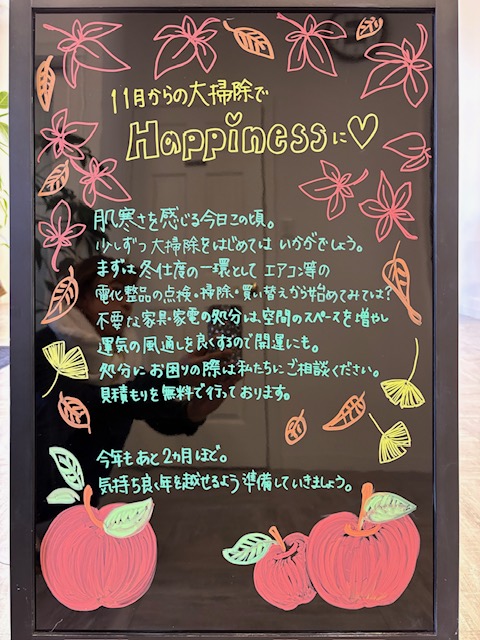 11月からの大掃除で
Happinessに♡
肌寒さを感じる今日この頃。
少しずつ大掃除をはじめてはいかがでしょう。
まずは冬仕度の一環としてエアコン等の
電化製品の点検・掃除・買い替えから始めてみては?
不要な家具・家電の処分は空間のスペースを増やし
運気の風通しを良くするので開運にも。
処分にお困りの際は私たちにご相談ください。
見積もりを無料で行っております。
今年もあと2カ月ほど。
気持ち良く年を越せるよう準備していきましょう。